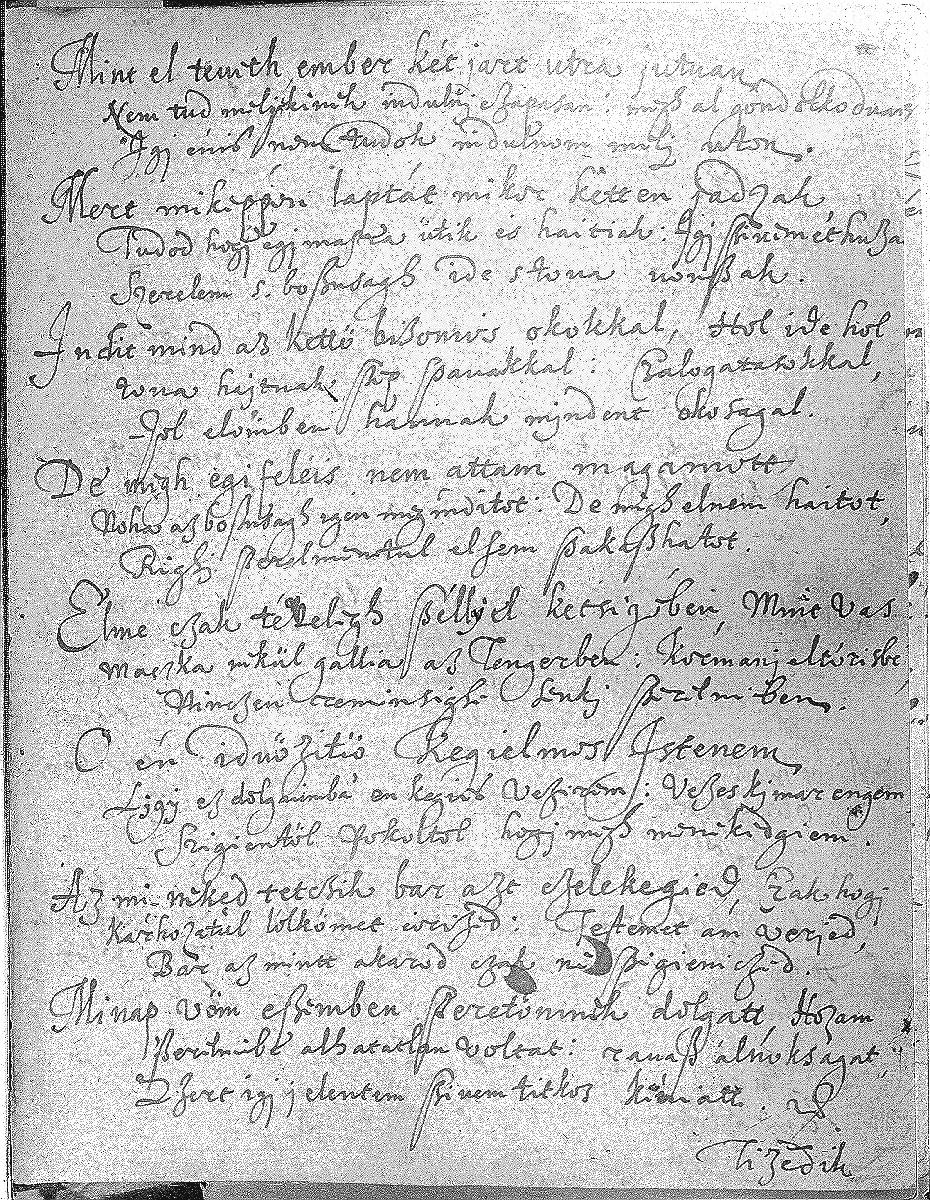 Mint el teuith ember két jart utra jutuan
Nem tud meljikinek indulni
Igj enis nem tudok indulnom melj uton.
Mert mikeppon laptát mikor ketten jadzak
Tudod hogj egj masra ütik es haitiak: Igj szivemet husza
Szerelem s. boszusagh ide s toua uonszak.
Indit mind az kettö bizonios okokkal, Hol ide hol
toua hijtnak szep szauakkal: Czalogatasokkal,
Jol elömben hannak mindent okosagal.
De migh egifeleis nem attam magamott
Noha az boszusagh igen meginditot: De migh elnem haitot,
Righi szerelmemtul elsem szakaszhatot.
Elme czak téueligh széllyel ketsigében, Mint Vas
maczka nekül gallia az Tengerben: Kormanj eltörisbe,
Ninczen remensigh Senkj szerelmeben.
O én iduözitiö Kegielmos Istenem
Ligj ez dolgaimba en kegios Vezirem: Vezeskj mar engem
Szigientöl Pokoltol hogj
Az mi neked tetczik bar azt czelekegied, Czak hogj
Karhozatul lölkömet örized: Testemet am verjed,
Bar az mintt akarod czak ne szigieniczed.
Minap vöm eszemben szeretömnek dolgatt, Hozam
szerelmibe alhatatlan voltat: rauasz álnoksagat,
Ezert igj jelentem sziuem titkos kiniatt.
Tizedik